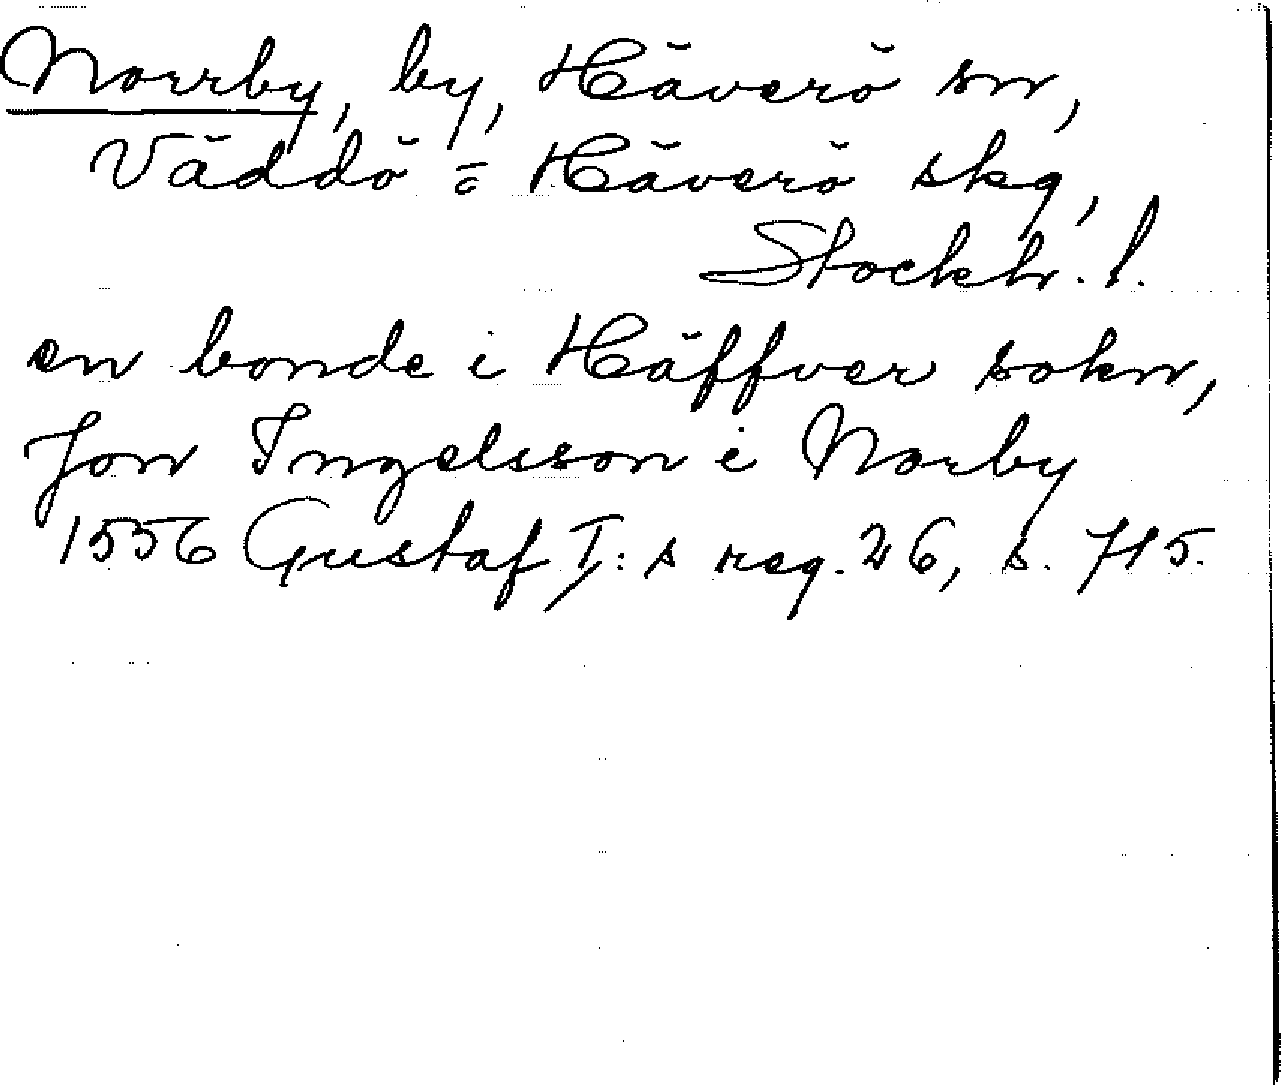 Norrby, by, Häverö sn,
Väddö = Häverö skg,
Stockh. l.
en bonde i Häffver sokn,
Jon Ingelsson i Norby
1556 Gustaf I:s reg. 26, s. 715.